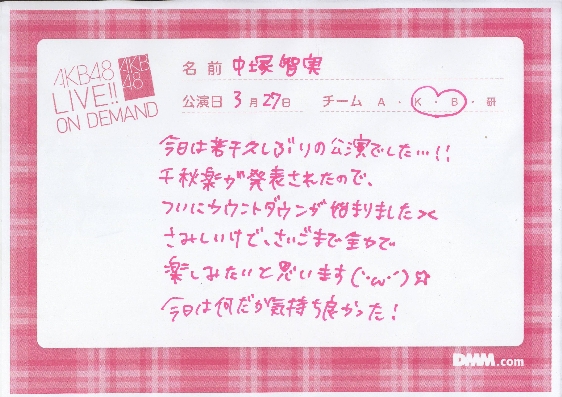 AKB48
LIVE!!
ON DEMAND
AKB
48
名前 中塚智実
公演日 3月27日 チーム A・K・B・研
今日は若干久しぶりの公演でした…!!
千秋楽が発表されたので、
ついにカウントダウンが始まりました><
さみしいけど、さいごまで全力で
楽しみたいと思います(´・ω・`)☆
今日は何だか気持ち良かった!
DMM.com